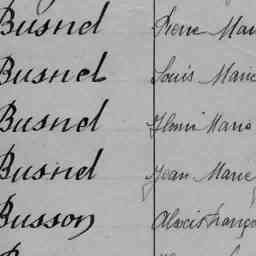 Busnel Pierre Mari
Busnel Louis Marie
Busnel Henri Marie
Busnel Jean Marie
Busson Alexis Franço